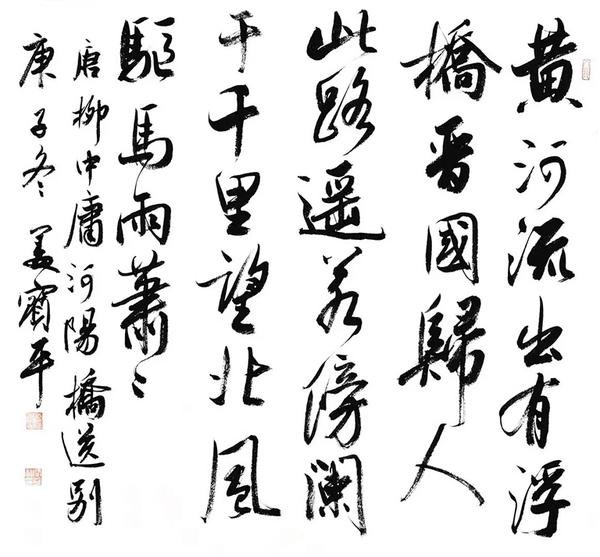 黄河流出有浮
橋晋國歸人
此路遥若傍闌
干千里望北風
驅馬雨蕭〻
唐柳中庸河陽橋送别
庚子冬 姜寶平